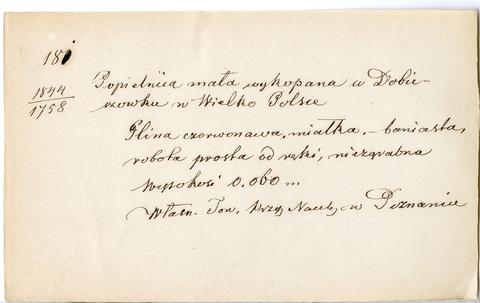 181
1844
1758
Popielnica mała wykopana w Dobie-
szewku w Wielko Polsce
Glina czerwonawa, miałka, – baniasta,
robota prosta od ręki, niezgrabna
Wysokość 0.060 m
Własn. Tow. Przyj Nauk, w Poznaniu